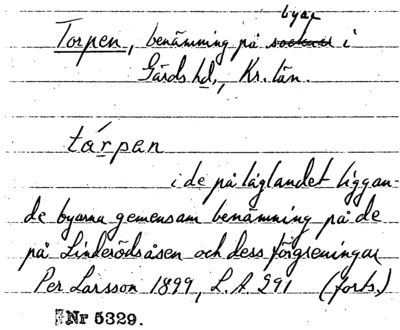 byar
Torpen, benämning på socknar i
Gärds hd, Kr. län.
tárpan
i de på låglandet liggan-
de byarna gemensam benämning på de
på Linderödsåsen och dess förgreningar
Per Larsson 1899, L.A. 291 (forts.)
Nr 5329.